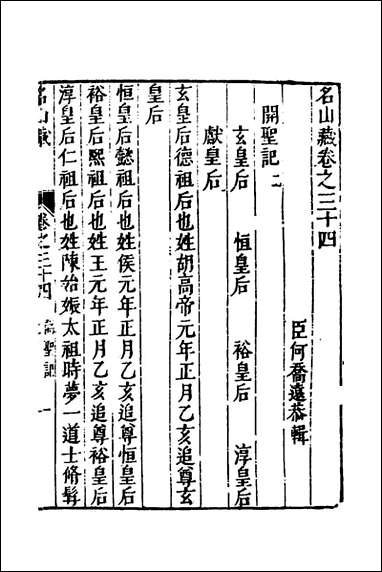 名山藏卷之三十四
臣何喬遠恭輯
開聖記二
玄皇后 恒皇后 裕皇后 淳皇后
獻皇后
玄皇后德祖后也姓胡高帝元年正月乙亥追尊玄
皇后
恒皇后懿祖后也姓侯元年正月乙亥追尊恒皇后
裕皇后熙祖后也姓王元年正月乙亥追尊裕皇后
淳皇后仁祖后也姓陳始娠太祖時夢一道士脩髯
名山藏 卷之三十四 聖記 一